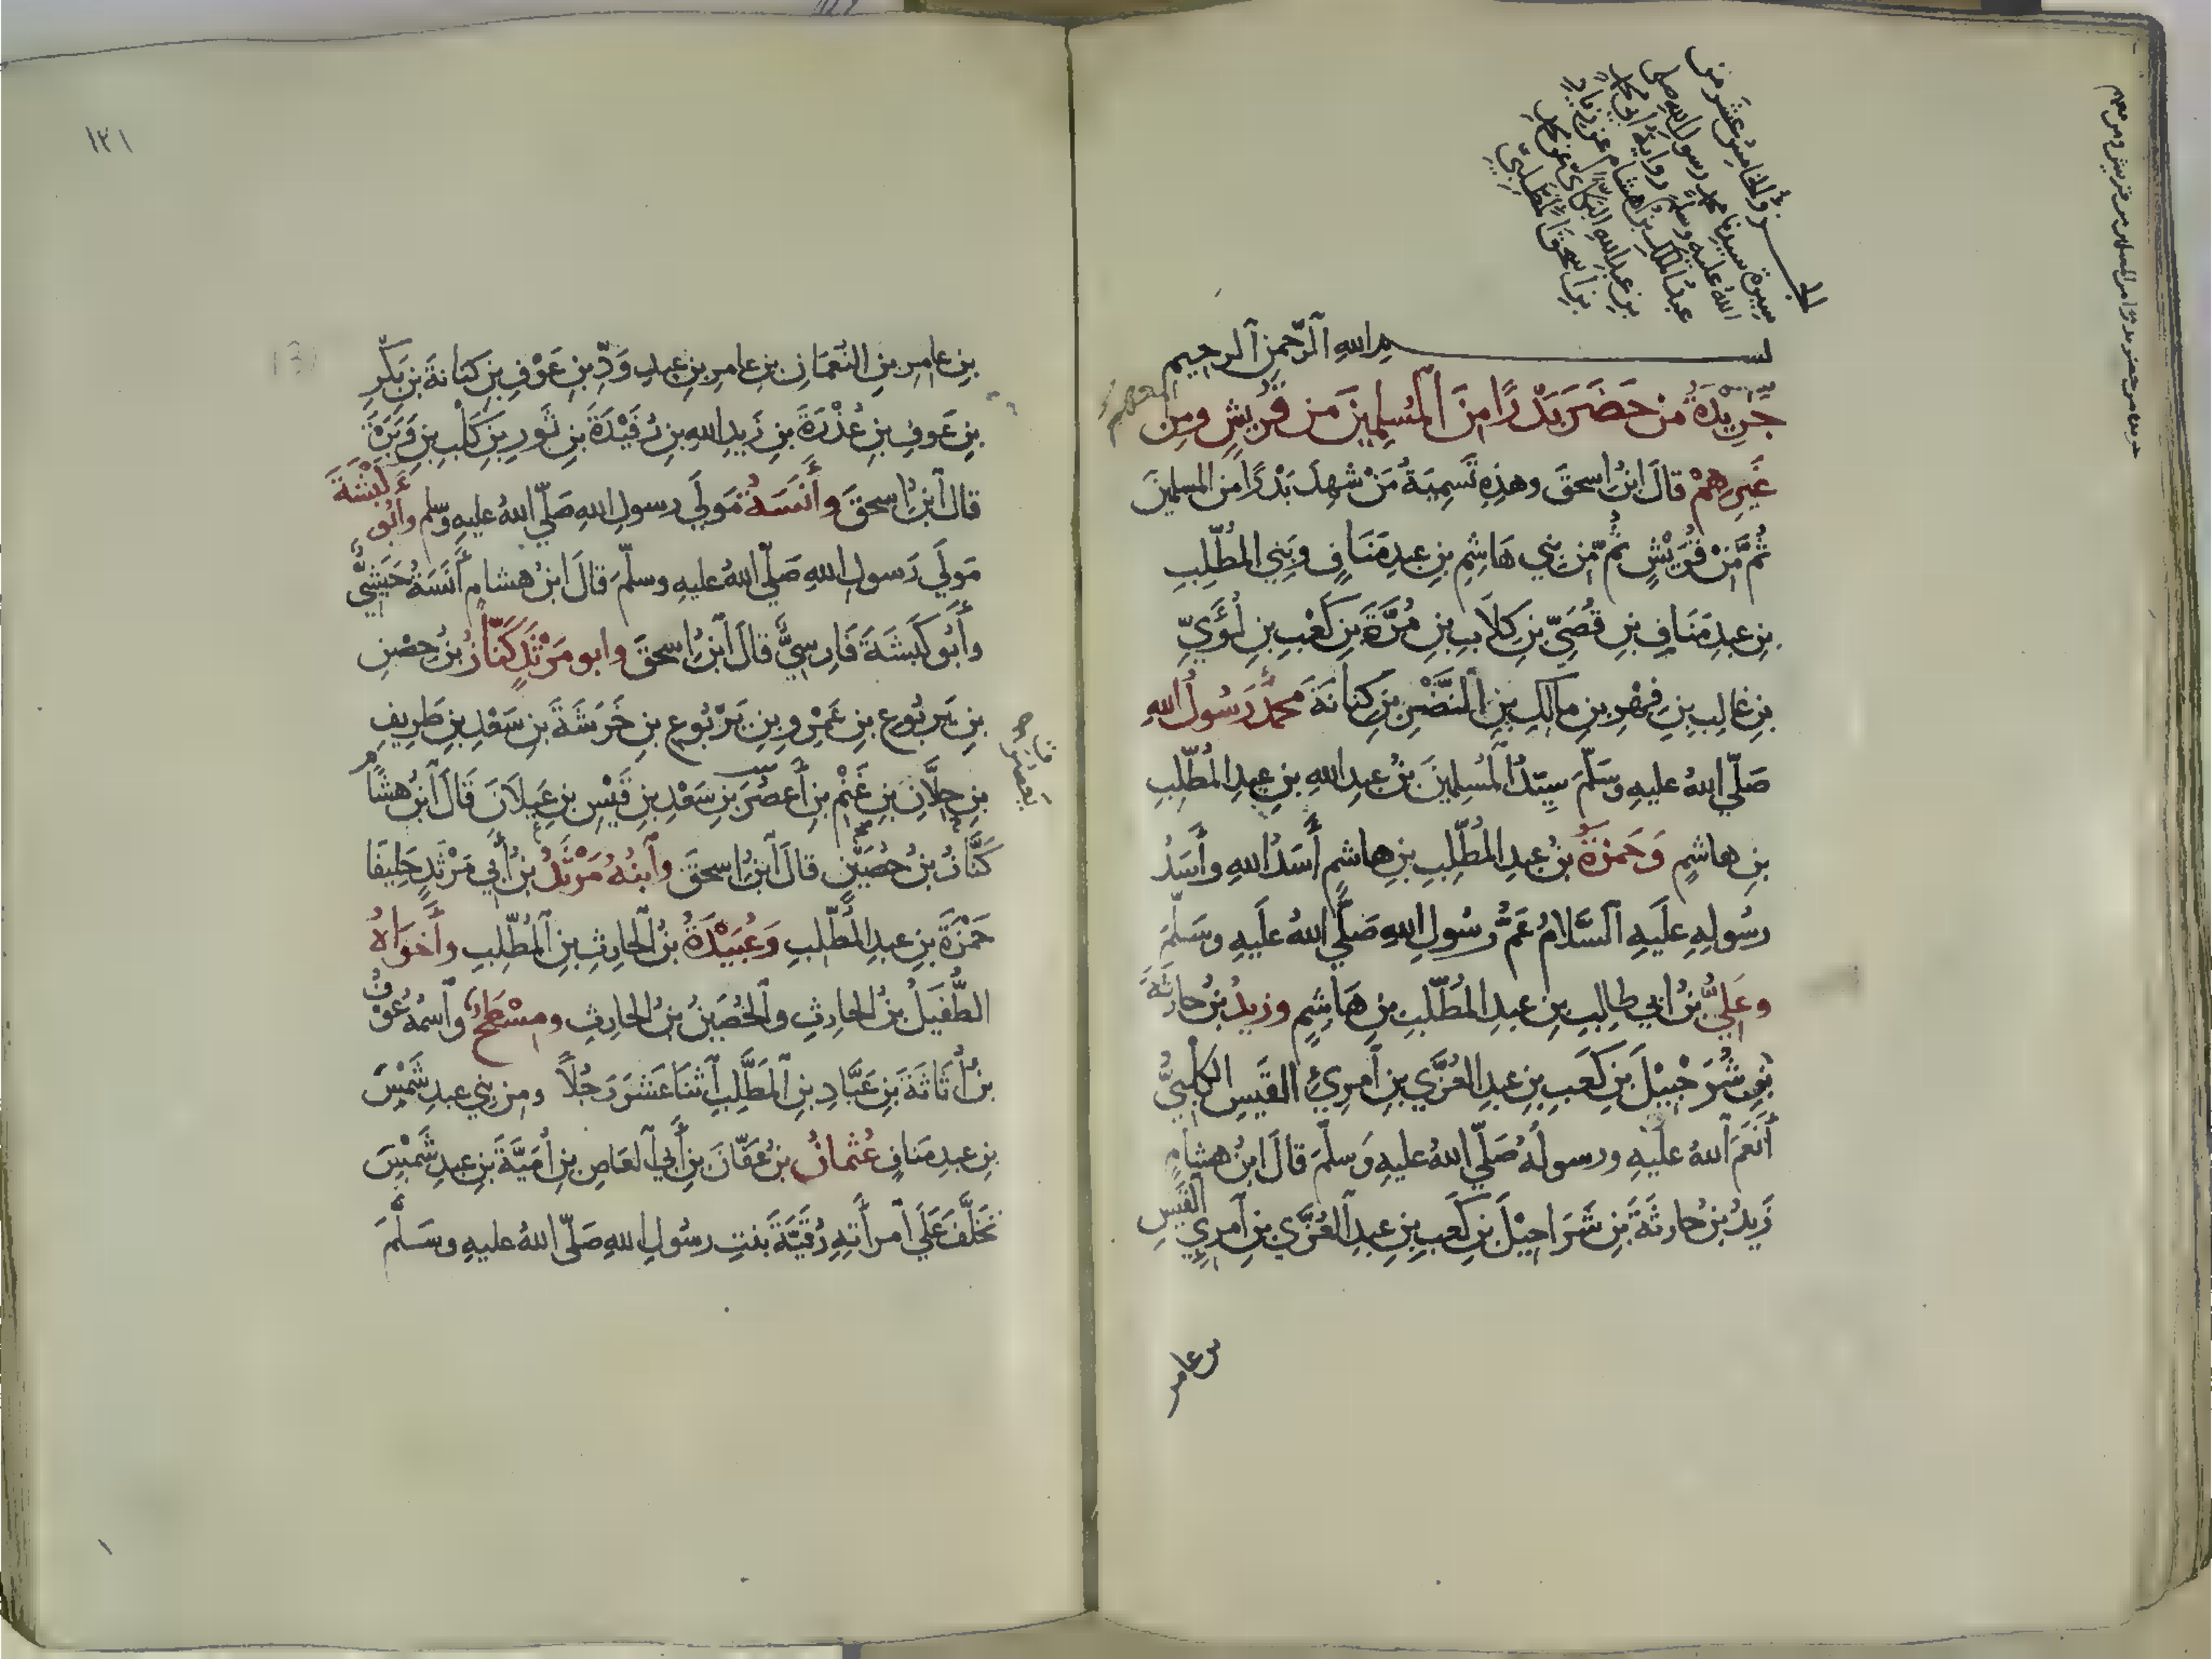 الجزؤ الخامس عشر من
سيرة سيدنا محمد رسول الله صلى
الله عليه وسلم رواية أبي محمد
عبد الملك بن هشام عن زياد
بن عبد الله البكائي عن محمد
بن اسحق المطلبي
بسم الله الرحمن الرحيم
جَرِيْدَةُ من حَضَرَ بَدْرًا مِنَ المُسلِمِينَ من قُرَيْشٍ ومِن
غَيرِهمْ قالَ ابنُ اسحقَ وهذِهِ تَسمِيَةُ مَنْ شَهِدَ بَدْرًا من المسلمينَ
ثُمَّ مِنْ قُرَيْشٍ ثُمَّ مِن بنِي هَاشِمِ بنِ عبدِ مَنَافٍ وبَنِي المُطَّلِبِ
بنِ عبدِ مَنَافِ بنِ قُصَيِّ بنِ كِلَابِ بنِ مُرَّةَ بنِ كَعْبِ بنِ لُؤَيِّ
بنِ غالِبِ بنِ فِهْرِ بنِ مالِكِ بنِ النَّضْرِ بنِ كِنانَةَ مُحَمَّدٌ رَسُولُ اللهِ
صَلَّي اللهُ عليهِ وسَلَّمَ سيّدُ المُسلِمينَ بنُ عبدِ اللهِ بنِ عبدِ المُطَّلِبِ
بنِ هاشمٍ وَحَمزةُ بنُ عبدِ المُطَّلِبِ بنِ هاشمٍ أَسَدُ اللهِ وأَسَدُ
رسُولِهِ عليَهِ السَّلامُ عَمُّ رسُولِ اللهِ صَلَّي اللهُ علَيهِ وسَلَّمَ
وعَلِيُّ بنُ ابي طالِبِ بنِ عبدِ المُطَّلِبِ بنِ هَاشِمٍ وزيدُ بنُ حارثَةَ
بنِ شُرَحْبِيْلَ بنِ كَعبِ بنِ عبدِ العُزَّي بنِ امرِئِ القَيسِ الكلْبِيُّ
أَنعَمَ اللهُ علَيهِ ورسولُهُ صَلَّي اللهُ عليهِ وَسلَّمَ قالَ ابنُ هشامٍ
زَيدُ بنُ حارثةَ بنِ شَرَاحِيْلَ بنِ كَعبِ بنِ عبدِ العُزَّي بنِ امرِئِ القَيسِ
بن عامر
١٢١
بنِ عامِرِ بنِ النُعمَانِ بنِ عامرِ بنِ عبدِ وَدِّ بنِ عَوْفِ بنِ كنانةَ بنِ بَكْرِ
بنِ عَوفِ بنِ عُذْرَةَ بنِ زَيدِ اللهِ بنِ رُفَيْدَةَ بنِ ثَورِ بنِ كَلْبِ بنِ وَبَرَةَ
قال ابنُ اسحقَ وأَنَسَةُ مَولَي رسولِ اللهِ صَلَّي اللهُ عليهِ وسلم وأبُو كَبْشَةَ
مَولَي رَسولِ اللهِ صَلَّي اللهُ عليهِ وسلَّمَ قالَ ابنُ هشامٍ أَنَسَةُ حَبَشِيٌّ
وأَبُو كَبشَةَ فَارِسِيٌّ قالَ ابنُ اسحقَ وابو مَرْثَدٍ كَنَّازُ بنُ حِصْنِ
بنِ يَربُوعِ بنِ عَمْرِو بنِ يَرْبُوعِ بنِ خَرَشَةَ بنِ سَعْدِ بنِ طَرِيفِ
بنِ جِلَّانَ بنِ غَنْمِ بنِ أَعصُرَ بنِ سَعْدِ بنِ قَيْسِ بنِ عَيلَانَ قَالَ ابنُ هشامٍ
كَنَّازُ بنُ حُصَيْنٍ قالَ ابنُ اسحقَ وابنُهُ مَرْثَدُ بنُ أبي مَرْثَدٍ حَلِيفَا
حَمْزَةَ بنِ عبدِ المُطَّلِبِ وَعُبَيْدَةُ بنُ الحارِثِ بنِ المُطَّلِبِ وأَخَوَاهُ
الطُّفَيلُ بنُ الحارِثِ والحُصَيْنُ بنُ الحارِثِ ومِسْطَحٌ واسمُهُ عَوْفُ
بنُ أُثَاثَةَ بنِ عَبَّادِ بنِ المُطَّلِبِ اثنَا عَشَرَ رَجُلاً ومِن بنِي عبدِ شَمْسِ
بنِ عبدِ مَنافٍ عُثمانُ بنُ عَفّانَ بنِ أَبي العَاصِ بنِ اُمَيَّةَ بنِ عبدِ شَمْسٍ
تخَلَّفَ عَلَي امرأَتِهِ رُقَيَّةَ بنتِ رسُولِ اللهِ صَلَّي اللهُ عليهِ وسَلَّمَ